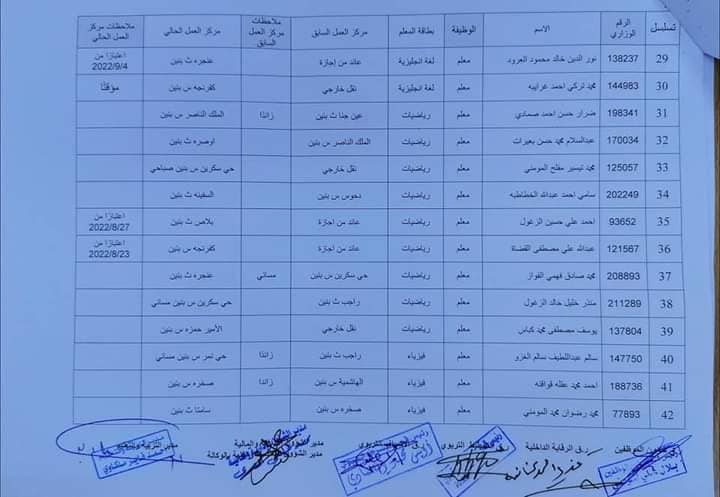 تسلسل الرقم الوزاري الاسم الوظيفة بطاقة المعلم مركز العمل السابق ملاحظات مركز العمل السابق مركز العمل الحالي ملاحظات مركز العمل الحالي
29 138237 نور الدين خالد محمود العرود معلم لغة انجليزية عائد من إجازة عنجره ث بنين اعتبارًا من 2022/9/4
30 144983 محمد تركي احمد غرايبه معلم لغة انجليزية نقل خارجي كفرنجه س بنين مؤقتًا
31 198341 ضرار حسن احمد صمادي معلم رياضيات عين جنا ث بنين زائدًا الملك الناصر س بنين
32 170034 عبدالسلام محمد حسن بعيرات معلم رياضيات الملك الناصر س بنين اوصره ث بنين
33 125057 محمد تيسير مفلح المومني معلم رياضيات نقل خارجي حي سكرين س بنين صباحي
34 202249 سامي احمد عبدالله الخطاطبه معلم رياضيات دحوس س بنين السفينه ث بنين
35 93652 احمد علي حسين الزغول معلم رياضيات عائد من اجازة بلاص ث بنين اعتبارًا من 2022/8/27
36 121567 عبدالله علي مصطفى القضاة معلم رياضيات عائد من اجازة كفرنجه س بنين اعتبارًا من 2022/8/23
37 208893 محمد صادق فهمي الفواز معلم رياضيات حي سكرين س بنين مسائي عنجره ث بنين
38 211289 منذر خليل خالد الزغول معلم رياضيات راجب ث بنين حي سكرين س بنين مسائي
39 137804 يوسف مصطفى محمد كباس معلم رياضيات نقل خارجي الأمير حمزه س بنين
40 147750 سالم عبداللطيف سالم الغزو معلم فيزياء راجب ث بنين زائدًا حي نمر س بنين مسائي
41 188736 احمد محمد عقله قواقنه معلم فيزياء الهاشمية س بنين زائدا صخره س بنين
42 77893 محمد رضوان محمد المومني معلم فيزياء صخره س بنين سامتا ث بنين
الموظفين ر.ق الرقابة الداخلية التربوي مدير الشؤون والمالية مدير التربية والتعليم
مدير الشؤون بالوكالة